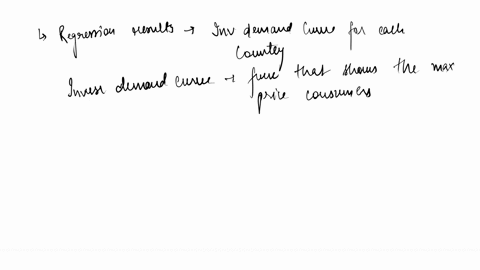 ↳ Regression results → Inv demand curve for each
country
Inverse demand curve → func that shows the max
price consumers